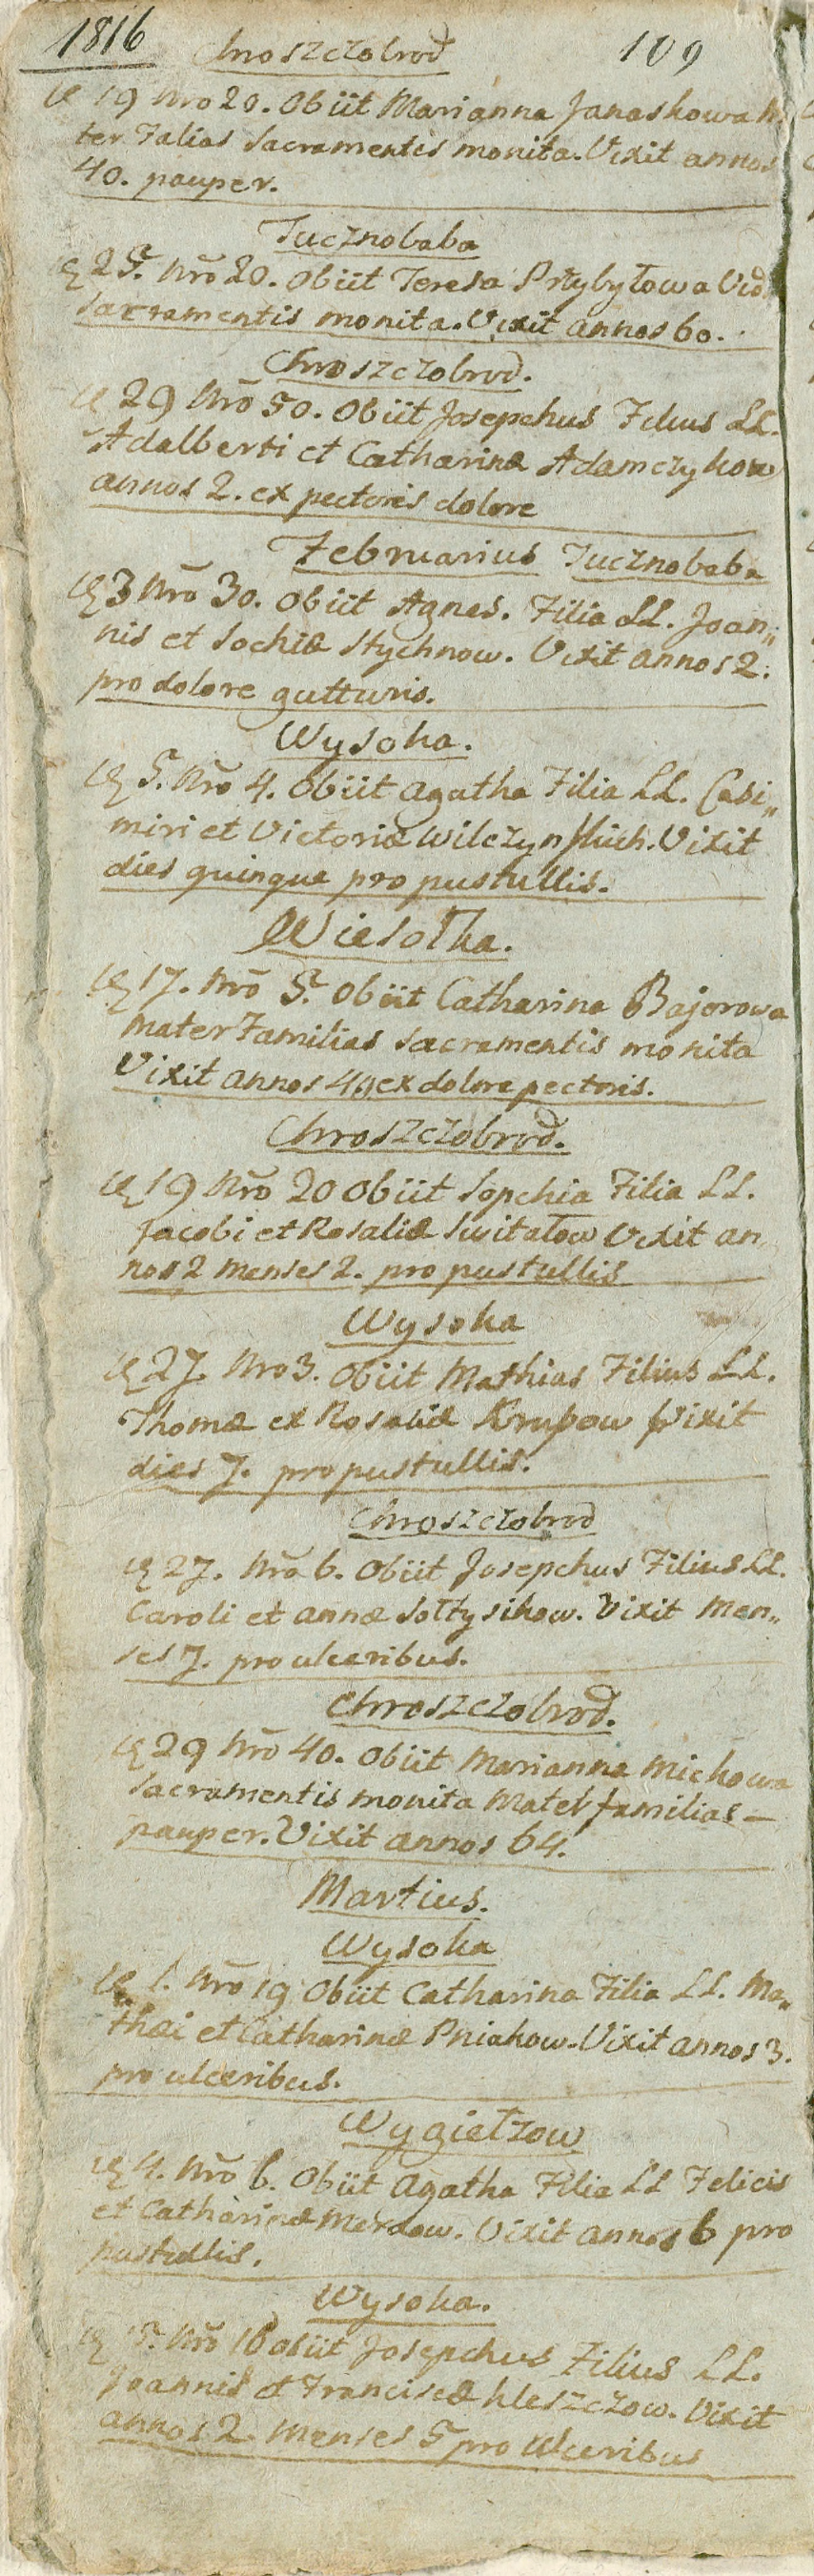 1816 Chroszczobrod 109
19 Nro 20. Obiit Marianna Janaskowa
ter Falias Sacramentis monita. Vixit annos
40. pauper.
Tucznobaba
25. Nro 20. Obiit Teresa Przybyłowa Vid
Sacramentis monita. Vixit annos 60.
Chroszczobrod.
29 Nro 50. Obiit Josepchus Filius LL.
Adalberti et Catharinæ Adamczykow
annos 2. ex pectoris dolore
Februarius Tucznobaba
3 Nro 30. Obiit Agnes. Filia LL. Joan„
nis et Sochiæ Stychnow. Vixit annos 2.
pro dolore gutturis.
Wysoka.
5. Nro 4. Obiit Agatha Filia LL. Casi„
miri et Victoriæ Wilczynskich. Vixit
dies quinque pro pustullis.
Wiesołka.
17. Nro 5. Obiit Catharina Bajorowa
Mater Familias Sacramentis monita
Vixit annos 40 ex dolore pectoris.
Chroszczobrod.
19 Nro 20 Obiit Sopchia Filia LL.
Jacobi et Rosaliæ Switałow Vixit an„
nos 2 menses 2. pro pustullis
Wysoka
27. Nro 3. Obiit Mathias Filius LL.
Thomæ ex Rosaliæ Krupow Vixit
dies 7. pro pustullis.
Chroszczobrod
27. Nro 6. Obiit Josepchus Filius LL.
Caroli et Annæ Sołtysikow. Vixit Men„
ses 7. pro ulceribus.
Chroszczobrod.
29 Nro 40. Obiit Marianna Michowa
Sacramentis monita Mater familias —
pauper. Vixit annos 64.
Martius.
Wysoka
1. Nro 19 Obiit Catharina Filia LL. Ma„
thæi et Catharinæ Pniakow. Vixit annos 3.
pro ulceribus.
Wygiełzow
4. Nro 6. Obiit Agatha Filia LL Felicis
et Catharinæ Merdow. Vixit annos 6 pro
pustullis.
Wysoka.
5. Nro 10 obiit Josepchus Filius LL.
Joannis et Franciscæ Kleszczow. Vixit
annos 2. Menses 5 pro Ulceribus